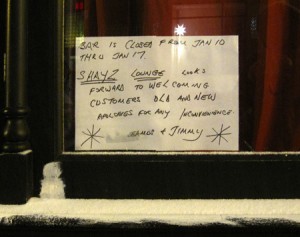 BAR IS CLOSED FROM JAN 10
THRU JAN 17.
SHAYZ LOUNGE LOOKS
FORWARD TO WELCOMING
CUSTOMERS OLD AND NEW
APOLOGIES FOR ANY INCONVENIENCE.
& JIMMY